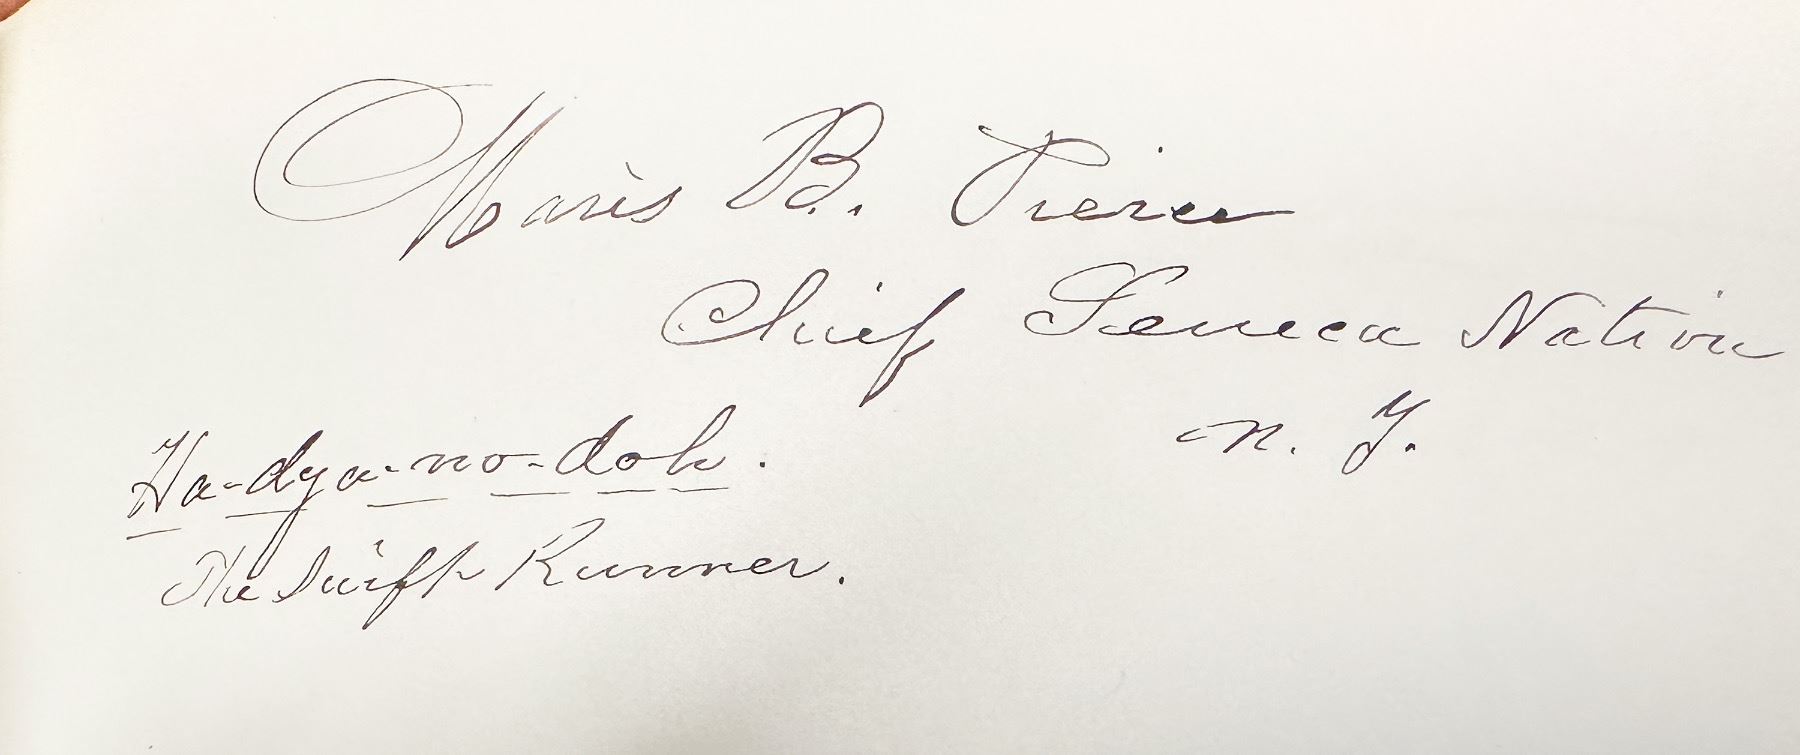 Maris B. Pierce
Chief Seneca Nation
N. Y.
Ha-dya-no-doh.
The Swift Runner.